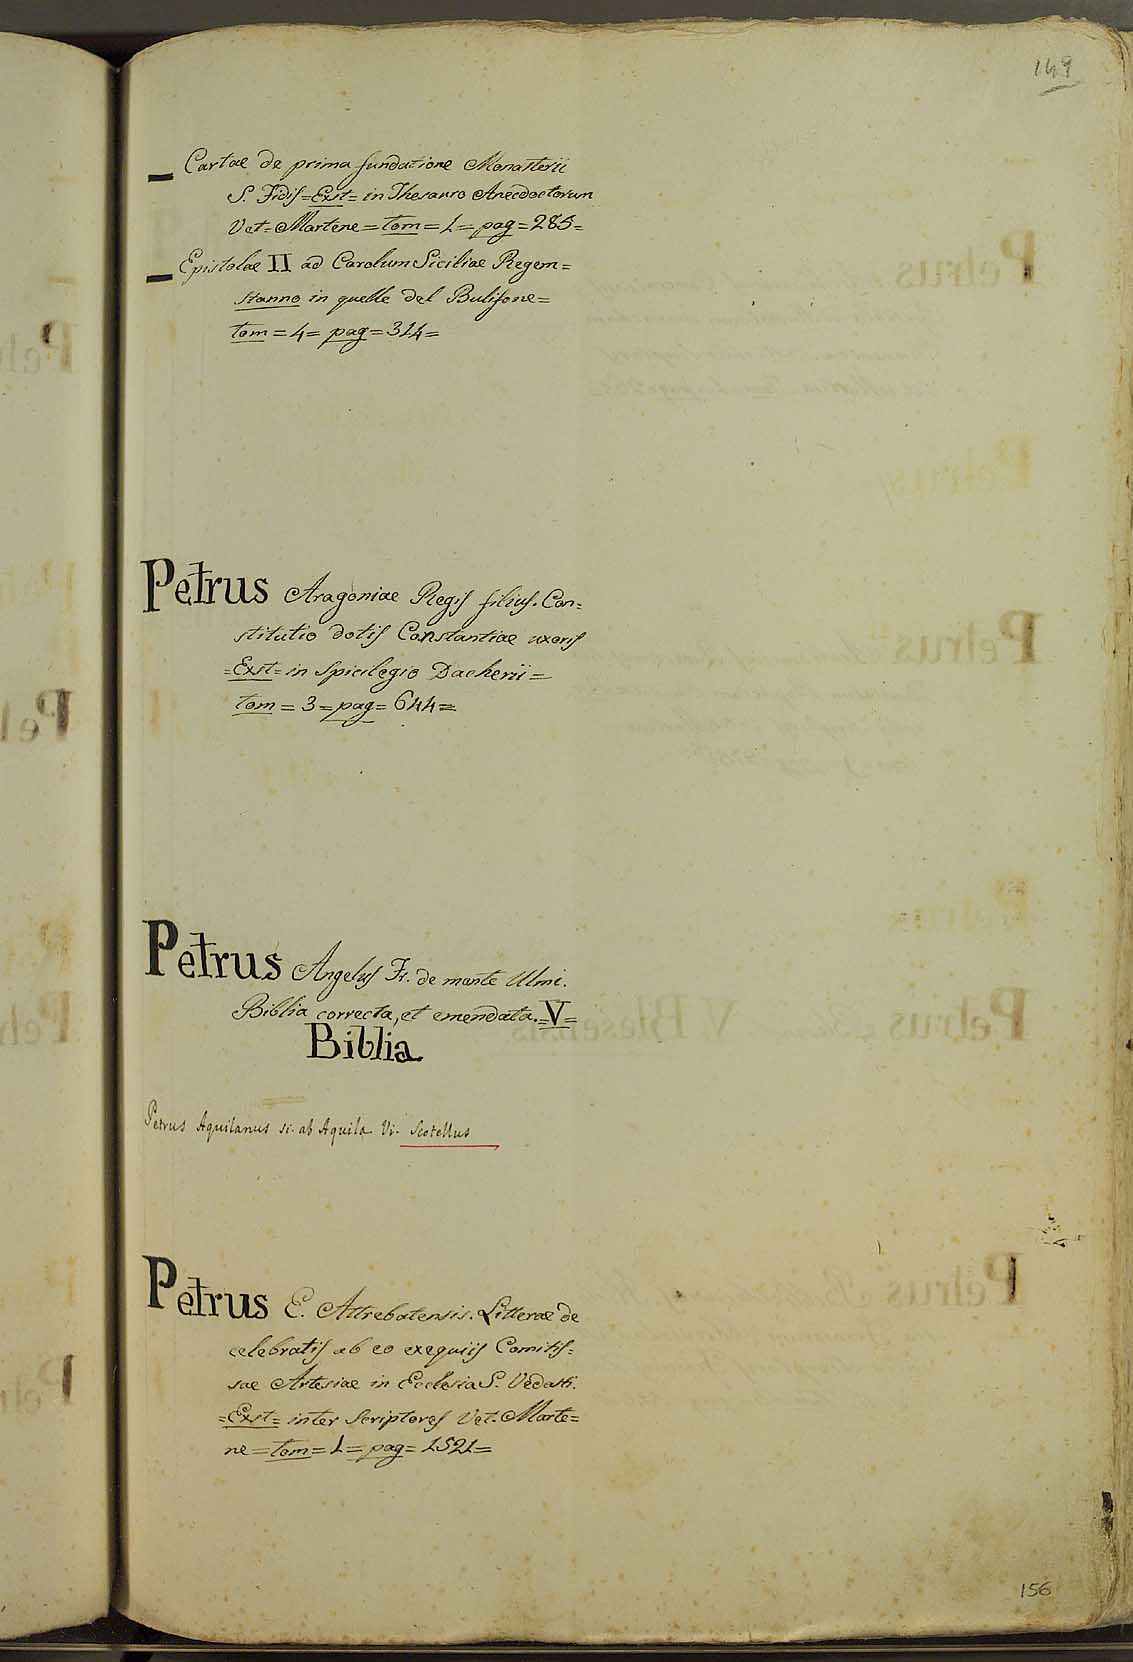 149
Cartae de prima fundatione Monasterii
S. Fidis = Exst = in Thesauro Anecdoctorum
Vet = Martene = tom = 1 = pag = 285 =
Epistolae II ad Carolum Siciliae Regem =
stanno in quelle del Bulifone =
tom = 4 = pag = 314 =
Petrus Aragoniae Regis filius. Con=
stitutio dotis Constantiae uxoris
= Exst = in Spicilegio Dacherii =
tom = 3 = pag = 644 =
Petrus Angelus Fr. de monte Ulmi.
Biblia correcta, et emendata. = V =
Biblia
Petrus Aquilanus s. ab Aquila Vi. Scotellus
Petrus E. Attrebatensis. Litterae de
celebratis ab eo exequiis Comitis=
sae Artesiae in Ecclesia S. Vedasti.
= Exst = inter Scriptores Vet. Marte=
ne = tom = 1 = pag = 1521 =
156